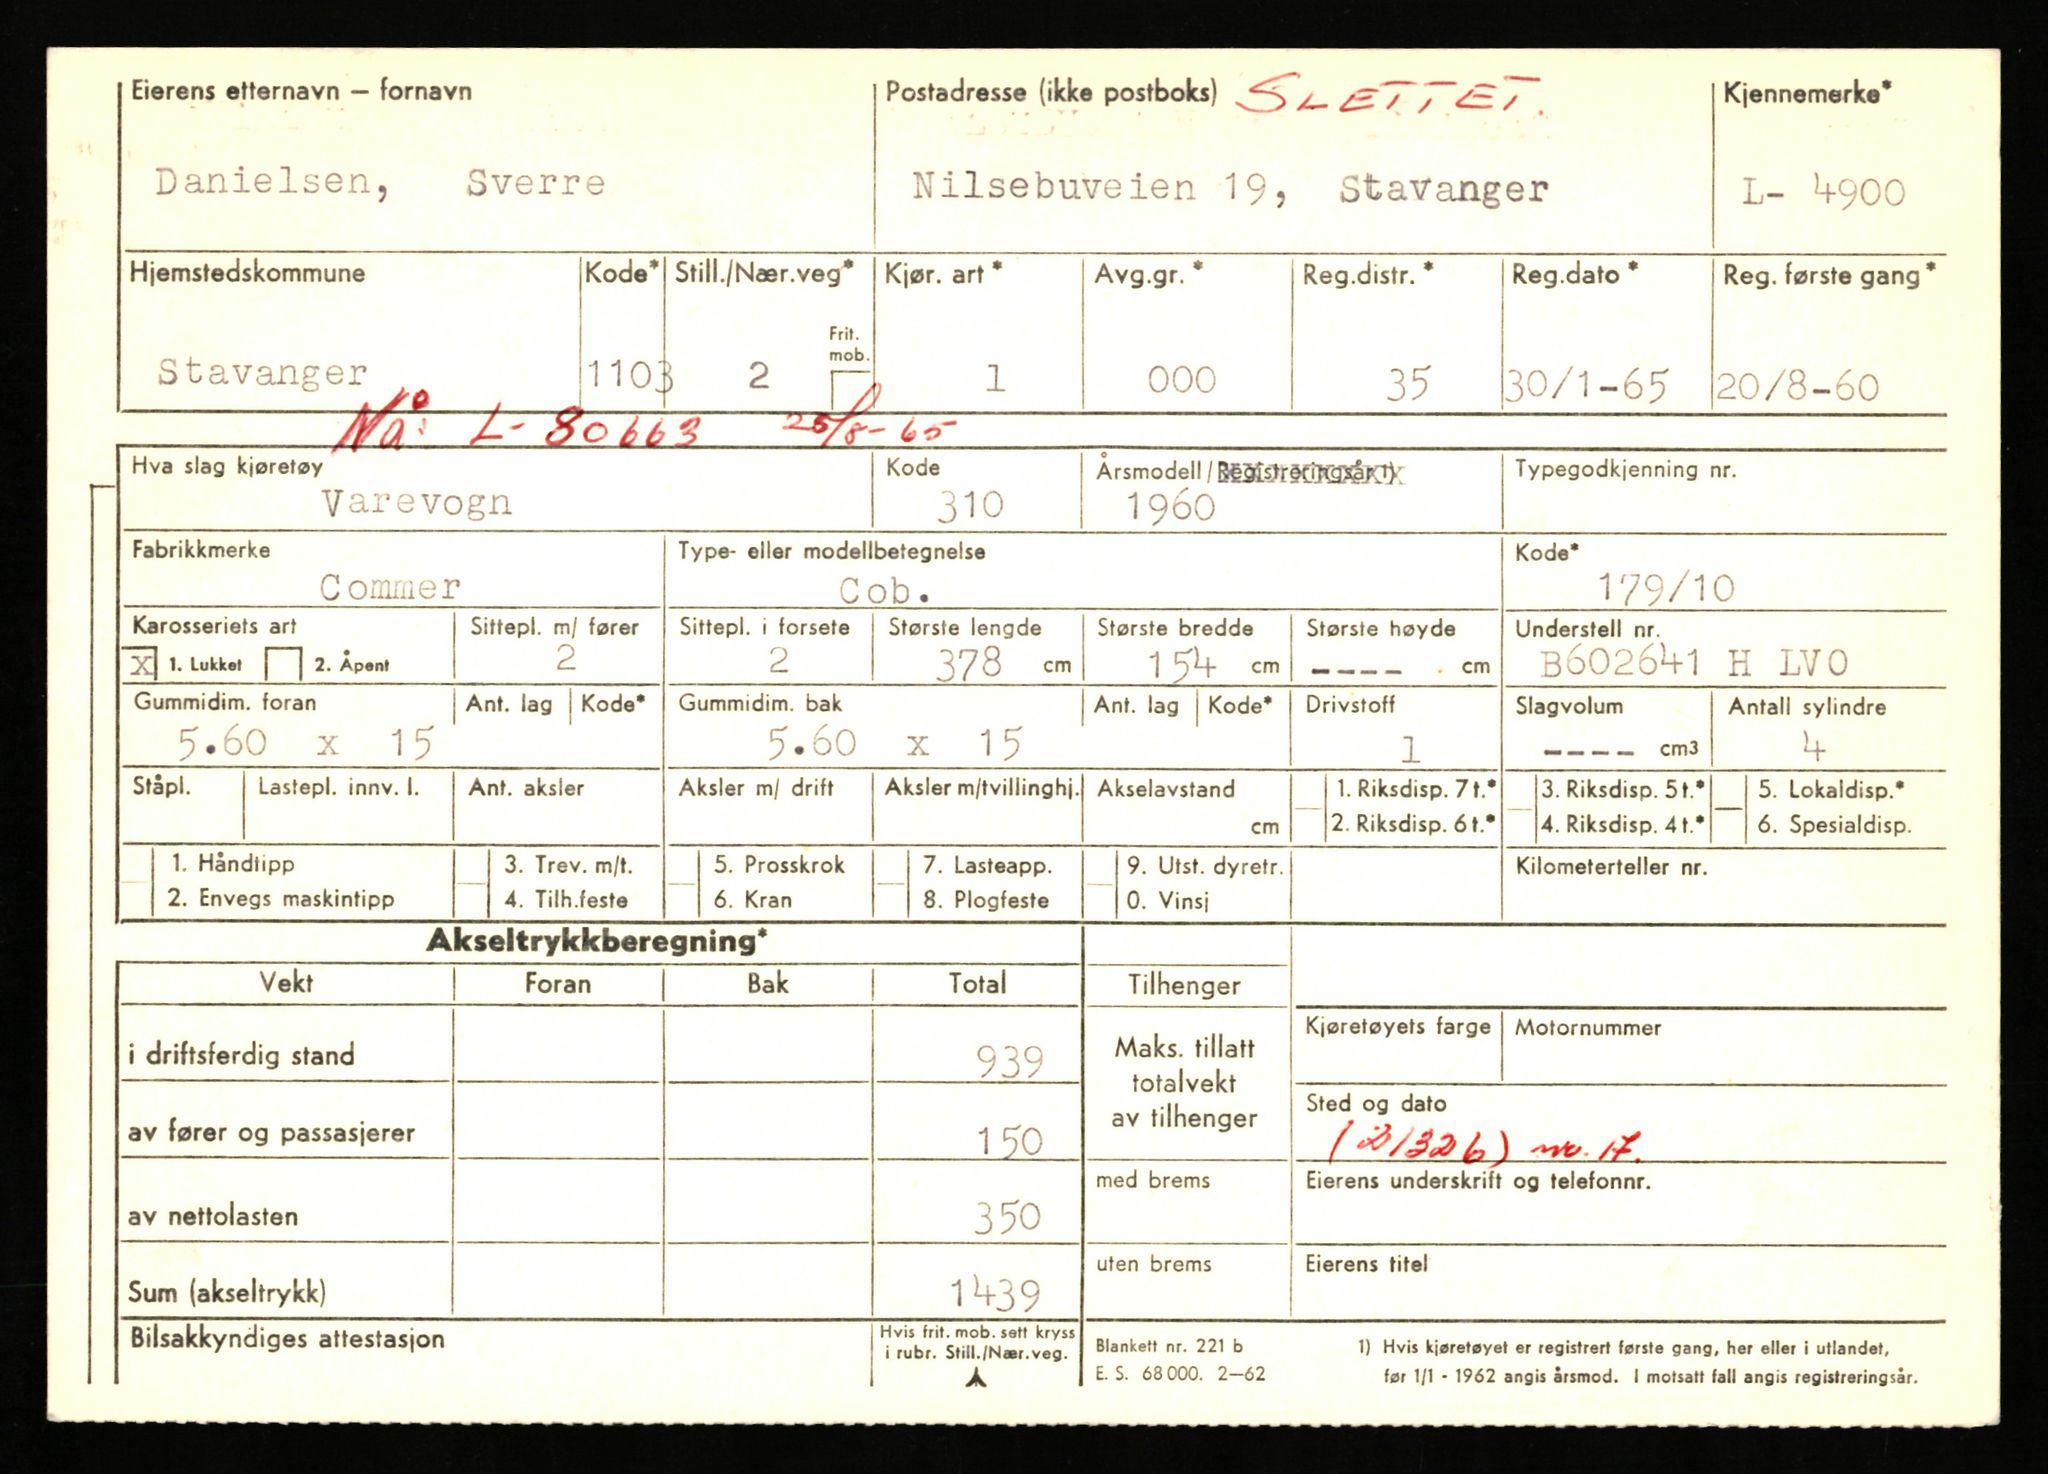 Eierens etternavn – fornavn
Postadresse (ikke postboks) SLETTET.
Kjennemerke*
Danielsen, Sverre
Nilsebuveien 19, Stavanger
L- 4900
Hjemstedskommune Kode* Still./Nær.veg* Kjør. art* Avg.gr.* Reg.distr.* Reg.dato* Reg. første gang*
Frit. mob.
Stavanger 1103 2 1 000 35 30/1-65 20/8-60
Nå: L- 80663 25/8-65
Hva slag kjøretøy Kode Årsmodell/Registreringsår 1) Typegodkjenning nr.
Varevogn 310 1960
Fabrikkmerke Type- eller modellbetegnelse Kode*
Commer Cob. 179/10
Karosseriets art Sittepl. m/ fører Sittepl. i forsete Største lengde Største bredde Største høyde Understell nr.
X 1. Lukket 2. Åpent 2 2 378 cm 154 cm ---- cm B602641 H LVO
Gummidim. foran Ant. lag Kode* Gummidim. bak Ant. lag Kode* Drivstoff Slagvolum Antall sylindre
5.60 x 15 5.60 x 15 1 ---- cm3 4
Ståpl. Lastepl. innv. l. Ant. aksler Aksler m/ drift Aksler m/tvillinghj. Akselavstand 1. Riksdisp. 7 t.* 3. Riksdisp. 5 t.* 5. Lokaldisp.*
cm 2. Riksdisp. 6 t.* 4. Riksdisp. 4 t.* 6. Spesialdisp.
1. Håndtipp 3. Trev. m/t. 5. Prosskrok 7. Lasteapp. 9. Utst. dyretr. Kilometerteller nr.
2. Envegs maskintipp 4. Tilh.feste 6. Kran 8. Plogfeste 0. Vinsj
Akseltrykkberegning*
Vekt Foran Bak Total Tilhenger
Kjøretøyets farge Motornummer
i driftsferdig stand 939
Maks. tillatt
totalvekt
av tilhenger
Sted og dato
(21326) nr. 17.
av fører og passasjerer 150
med brems Eierens underskrift og telefonnr.
av nettolasten 350
uten brems Eierens titel
Sum (akseltrykk) 1439
Bilsakkyndiges attestasjon
Hvis frit. mob. sett kryss
i rubr. Still./Nær.veg.
Blankett nr. 221 b
E. S. 68 000. 2–62
1) Hvis kjøretøyet er registrert første gang, her eller i utlandet,
før 1/1 - 1962 angis årsmod. I motsatt fall angis registreringsår.